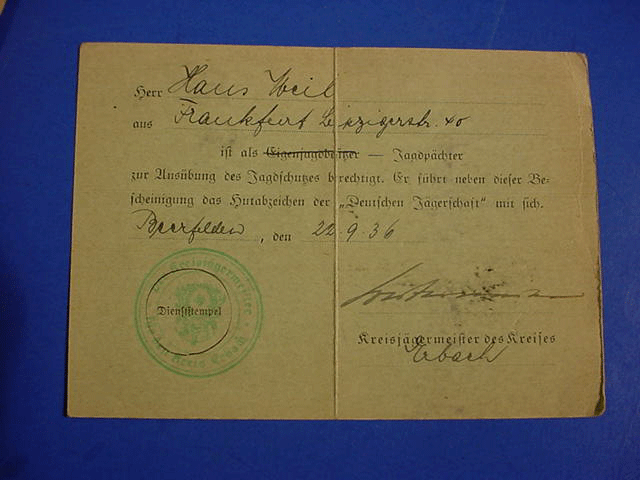 Herr Hans Weil
aus Frankfurt Leipzigerstr. 40
ist als Eigenjagdbesitzer — Jagdpächter
zur Ausübung des Jagdschutzes berechtigt. Er führt neben dieser Be-
scheinigung das Hutabzeichen der „Deutschen Jägerschaft“ mit sich.
Beerfelden, den 22.9.36
Kreisjägermeister
Dienststempel
Kreis Erbach
Kreisjägermeister des Kreises
Erbach